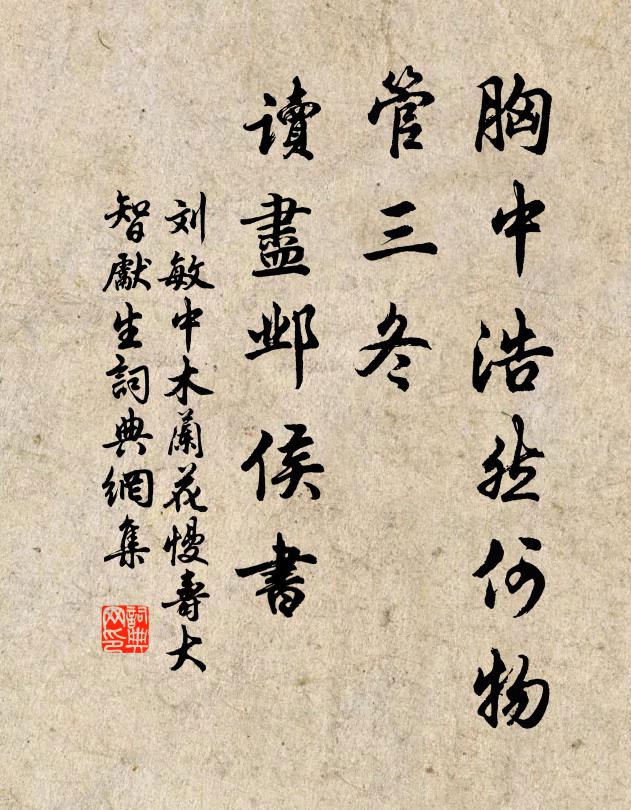 胸中浩然何物
管三冬
讀盡邺侯書
刘敏中木蘭花慢壽大
智獻生詞典網集
詞典网印